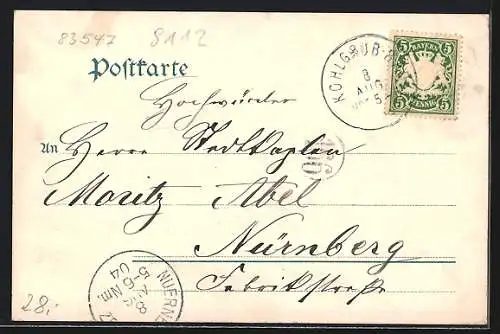 83547 8112
Postkarte
KOHLGRUB-B
8
AUG
5
BAYERN
5 5
5 5
PFENNIG
Hochwürden
An Herrn Stadtkaplan
Moritz Abel
Nürnberg
Fabrikstraße
NUERNB
8 AUG
5-6 Nm.
04
28.-